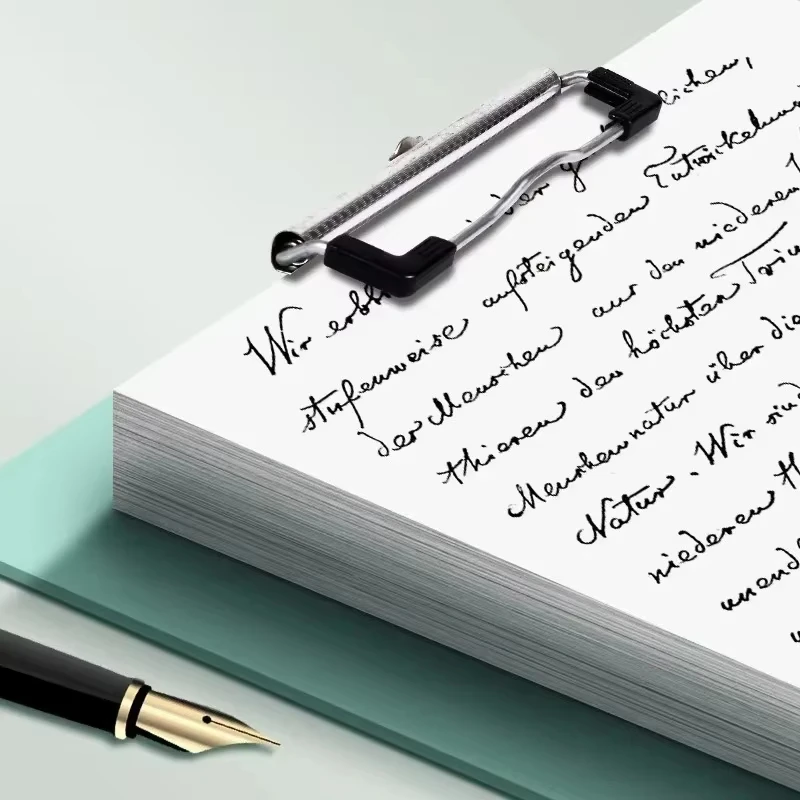 Wir der lichen,
stufenweise aufsteigenden Entwickelung
der Menschen aus den niederen
thieren den höchsten
Menschennatur über die
Natur. Wir sind
niederen